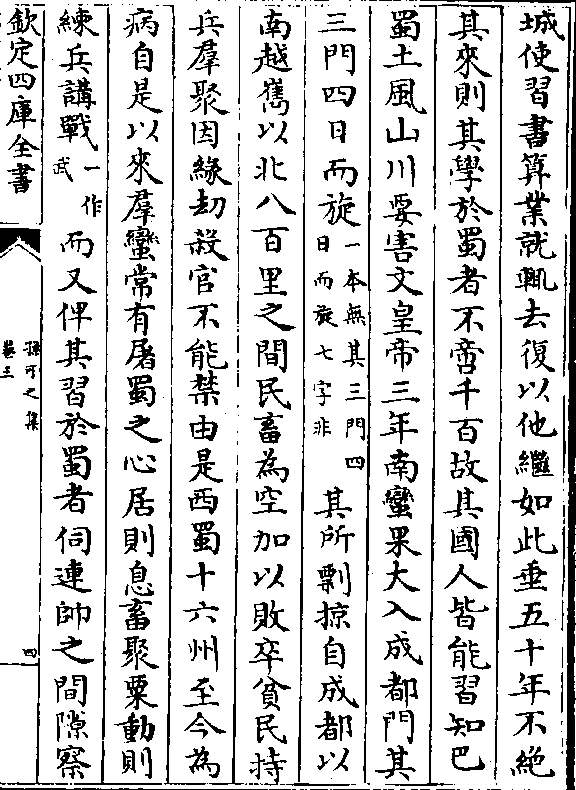 城使習書算業就輒去復以他繼如此垂五十年不絕
其來則其學於蜀者不啻千百故其國人皆能習知巴
蜀土風山川要害文皇帝三年南蠻果大入成都門其
三門四日而旋一本無其三門四日而旋七字非其所剽掠自成都以
南越嶲以北八百里之間民畜為空加以敗卒貧民持
兵羣聚因緣劫殺官不能禁由是西蜀十六州至今為
病自是以來羣蠻常有屠蜀之心居則息畜聚粟動則
練兵講戰一作武而又俾其習於蜀者伺連帥之間隙察
欽定四庫全書
孫可之集
卷三
四